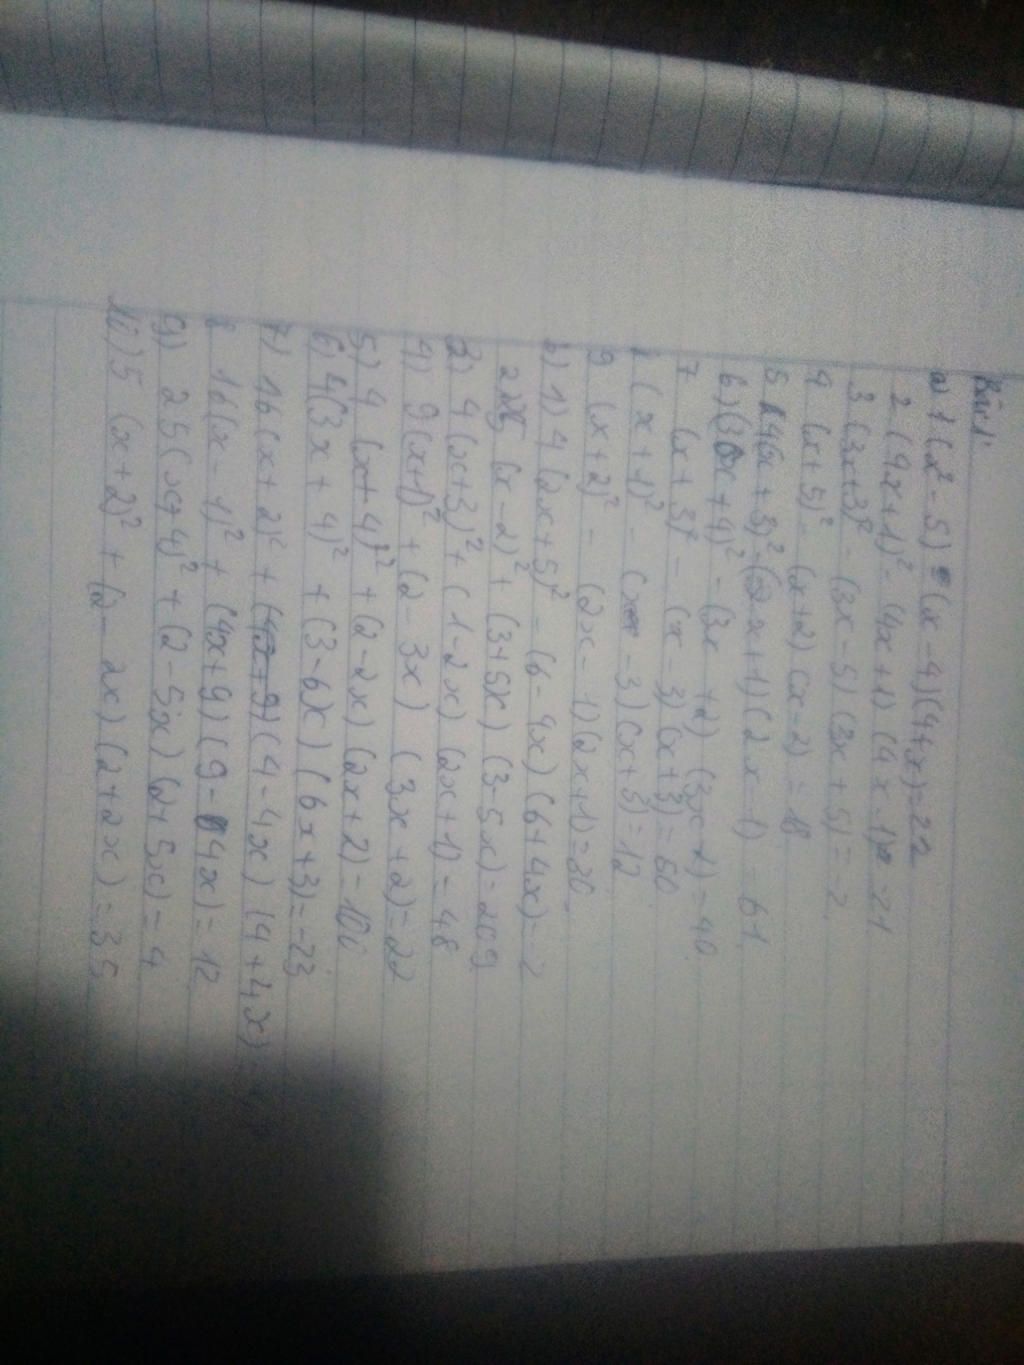 Bài 1:
a) 1 (x² - 5) (x - 4)(4+x)=22
2 (4x+1)² - (4x+1) (4x-1) = 21
3 (3x+3)² - (3x-5)(3x+5) = -2
4 (x+5)² - (x+2)(x-2) = 18
5 4(x+3)² - (2x+1)(2x-1) = 61
6) (3x+4)² - (3x +2) (3x-2) = 40
7 (x+3)² - (x-3)(x+3) = 60
(x+1)² - (x-3)(x+3)=12
9 (x+2)² - (2x-1)(2x+1)=30
b) 1) 4 (2x+5)² - (6-4x)(6+4x)=-2
2 25 (x-2)² + (3+5x) (3-5x)=209
3) 4(x+3)² + (1-2x) (2x+1) = 48
4) 9(x+1)² + (2-3x) (3x+2)=22
5) 4 (x+4)² + (2-2x)(2x+2)=100
6) 4(3x+4)² + (3-6x)(6x+3)=-23
7) 16(x+2)² + (4-4x) (4+4x) =
8 16(x-1)² + (4x+9)(9-4x)= 12
9) 25(x+4)² + (2-5x)(2+5x)= 4
10) 5 (x+2)² + (2-2x)(2+2x)=35